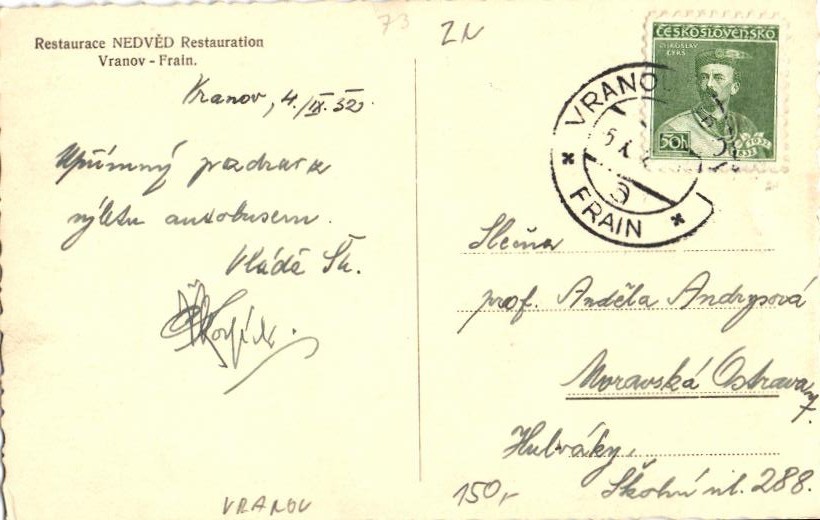 73
ZN
Restaurace NEDVĚD Restauration
Vranov - Frain.
Vranov, 4./IX. 32.
Upřímný pozdrav z
výletu autobusem.
Vláďa Šk.
ČESKOSLOVENSKO
MIROSLAV
TYRŠ
50h
1832
1932
VRANOV
FRAIN
Slečna
prof. Anděla Andrysová
Moravská Ostrava
7.
Hulváky,
Školní ul. 288.
150,-
VRANOV